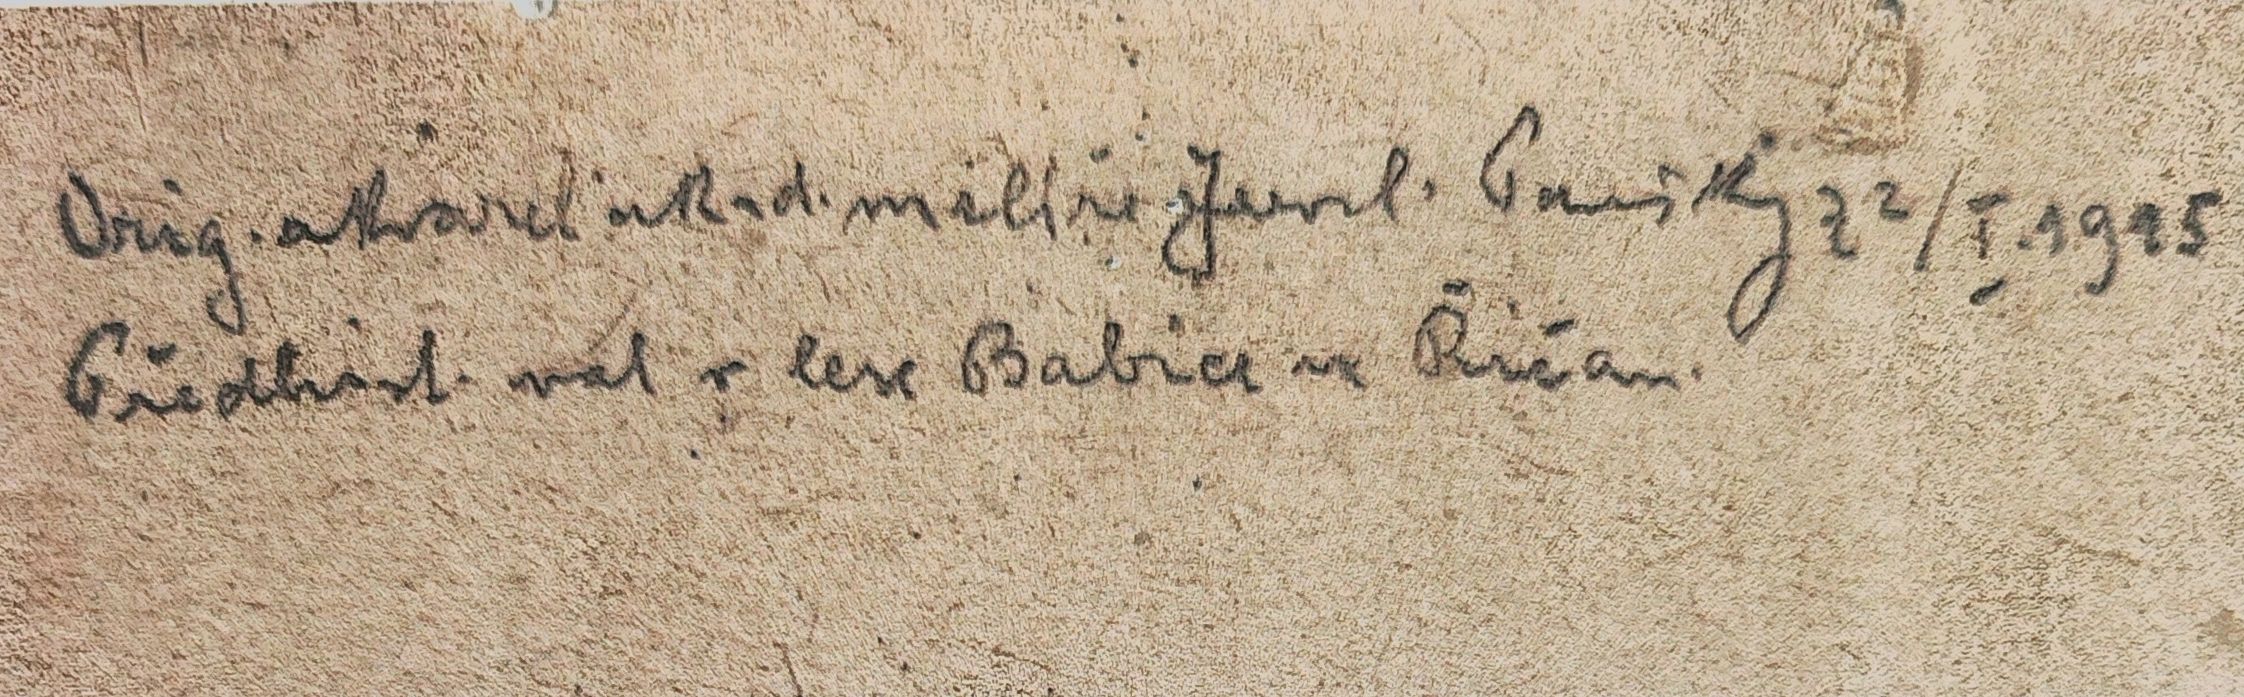 Orig. akvarel akad. malíře Jarosl. Panušky 22/I. 1945
Předhist. val v lese Babice u Říčan.